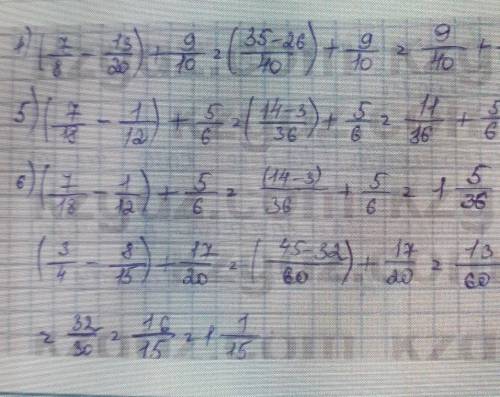 4) (7/8 - 13/20) + 9/10 = (35-26/40) + 9/10 = 9/40 +
5) (7/18 - 1/12) + 5/6 = (14-3/36) + 5/6 = 11/36 + 5/6
6) (7/18 - 1/12) + 5/6 = (14-3)/36 + 5/6 = 1 5/36
(3/4 - 8/15) + 17/20 = (45-32/60) + 17/20 = 13/60
= 32/30 = 16/15 = 1 1/15